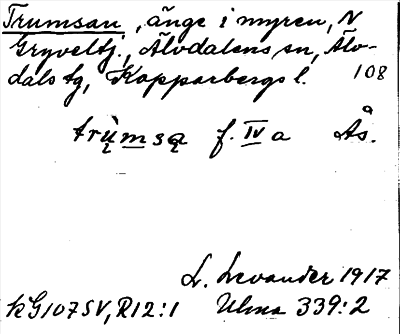 Trumsan, änge i myren, N
Gryveltj., Älvdalens sn, Älv-
dals tg, Kopparbergs l. 108
trųmsą f. IV a Ås.
L. Levander 1917
kG107SV, R12:1 Ulma 339:2